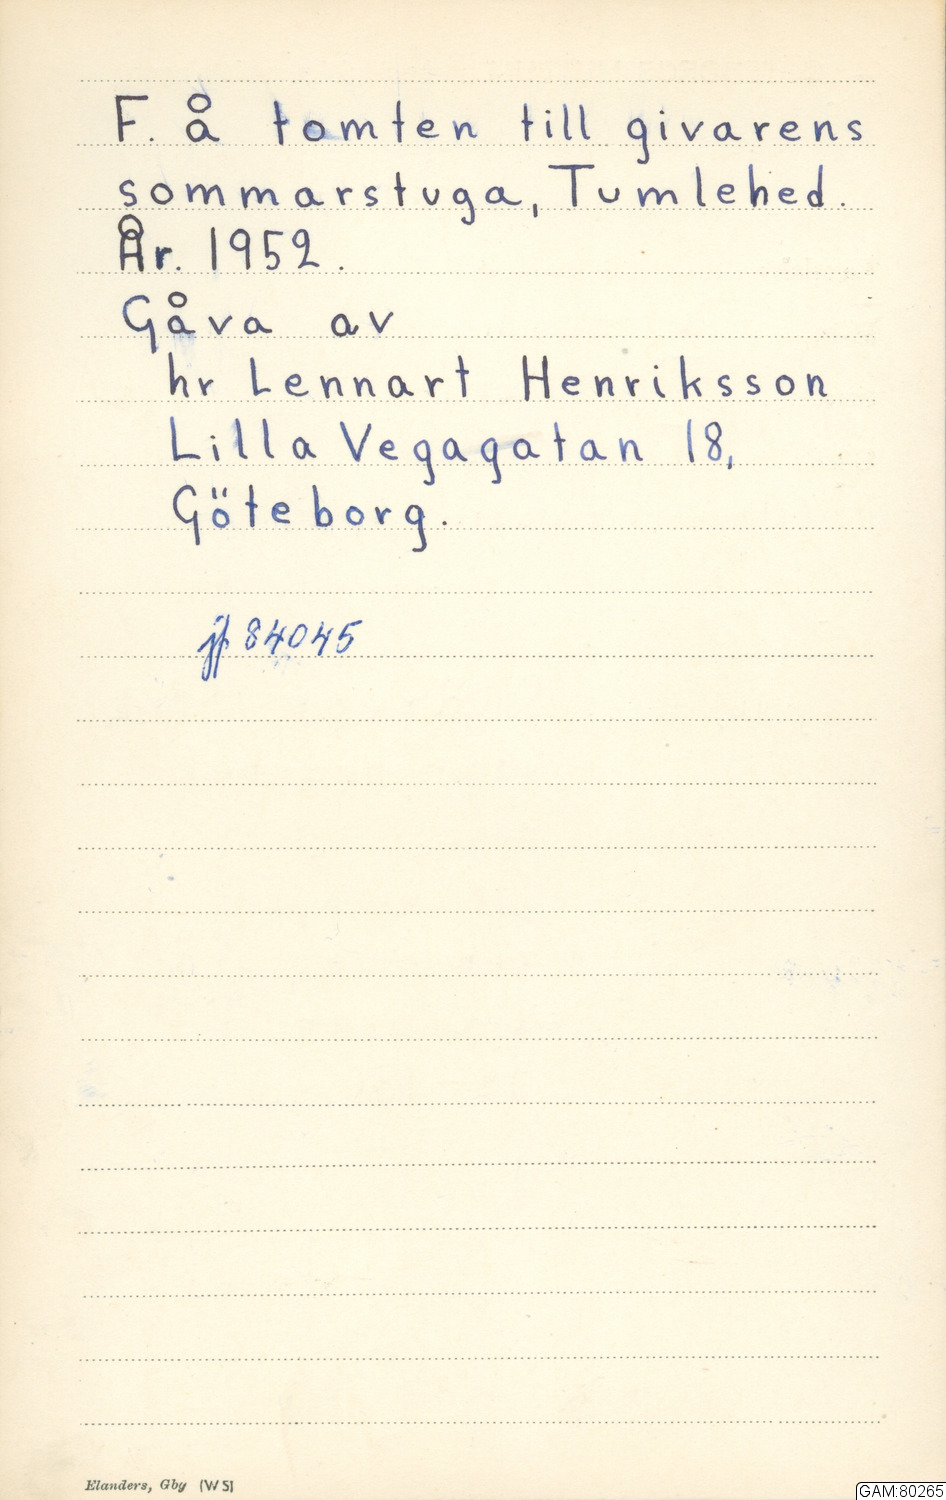 F. å tomten till givarens
sommarstuga, Tumlehed.
År. 1952.
Gåva av
hr Lennart Henriksson
Lilla Vegagatan 18,
Göteborg.
jf 84045
Elanders, Gby (W 5)
GAM:80265